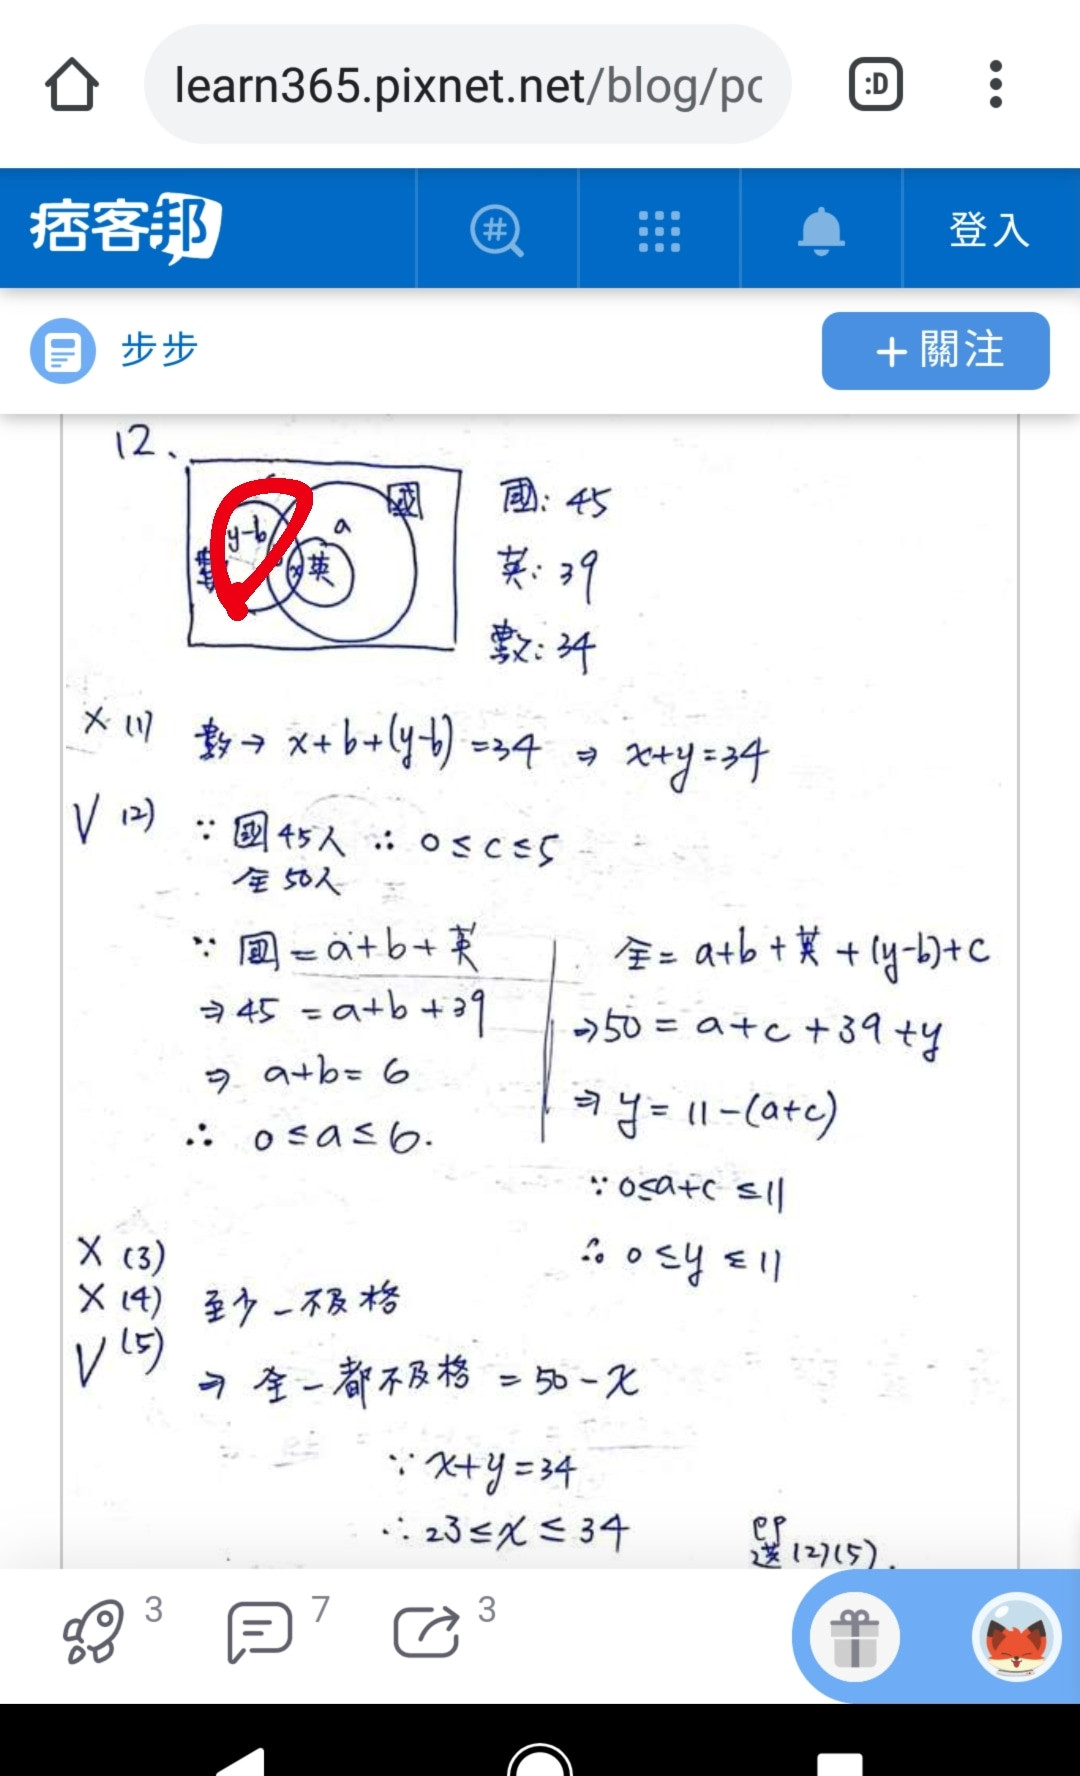 learn365.pixnet.net/blog/pc
:D
痞客邦
#
登入
步步
+ 關注
12、
y-b
a
國
數
b
x
英
國: 45
英: 39
數: 34
X (1) 數→ x+b+(y-b)=34 ⇒ x+y=34
V (2) ∵ 國45人 ∴ 0≤c≤5
全50人
∵ 國=a+b+英
⇒45 =a+b+39
⇒ a+b= 6
∴ 0≤a≤6.
全= a+b+英+(y-b)+c
⇒50= a+c+39+y
⇒ y= 11-(a+c)
∵ 0≤a+c ≤11
∴ 0≤y≤11
X (3)
X (4) 至少一不及格
V (5)
⇒ 全-都不及格 = 50-x
∵ x+y=34
∴ 23≤x≤34
即
選(2)(5).
3
7
3